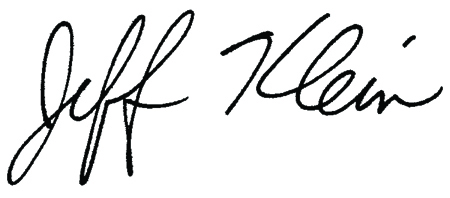 Jeff Klein